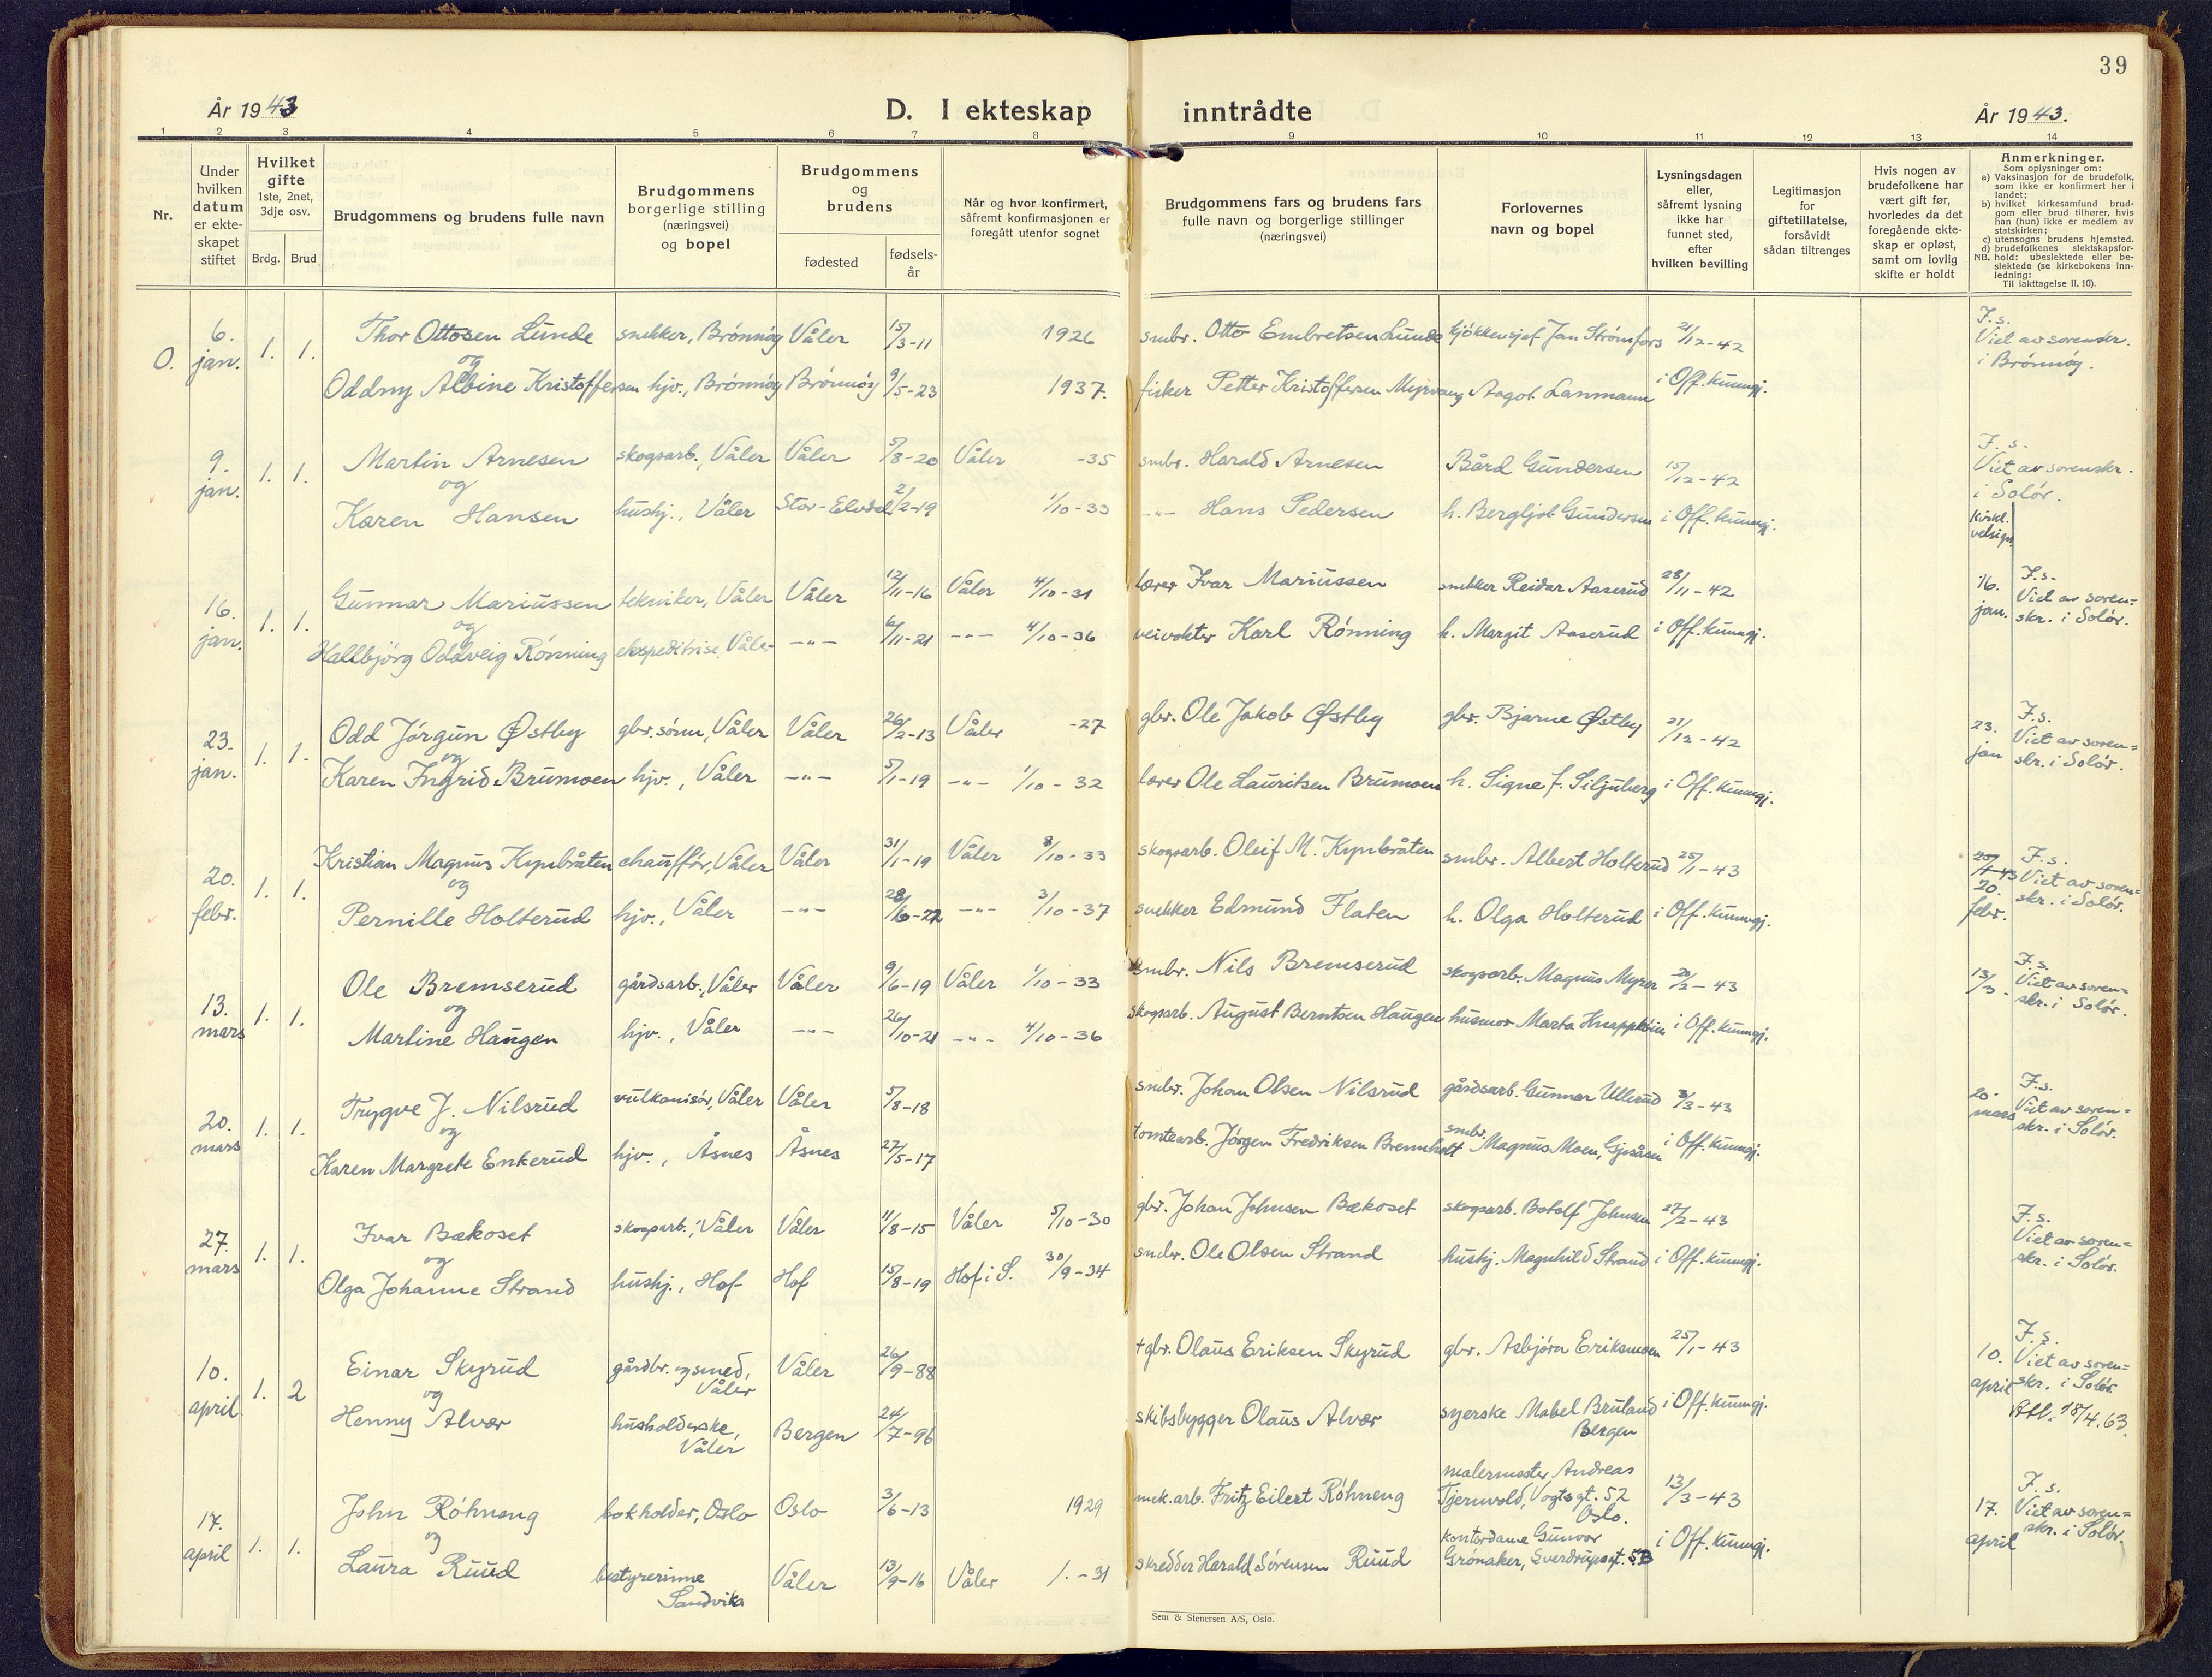 39
År 1943
D. I ekteskap inntrådte
År 1943.
1 2 3 4 5 6 7 8 9 10 11 12 13 14
Nr.
Under hvilken datum er ekteskapet stiftet
Hvilket gifte 1ste, 2net, 3dje osv.
Brdg. Brud
Brudgommens og brudens fulle navn
Brudgommens borgerlige stilling (næringsvei) og bopel
Brudgommens og brudens
fødested
fødselsår
Når og hvor konfirmert, såfremt konfirmasjonen er foregått utenfor sognet
Brudgommens fars og brudens fars fulle navn og borgerlige stillinger (næringsvei)
Forlovernes navn og bopel
Lysningsdagen eller, såfremt lysning ikke har funnet sted, efter hvilken bevilling
Legitimasjon for giftetillatelse, forsåvidt sådan tiltrenges
Hvis nogen av brudefolkene har vært gift før, hvorledes da det foregående ekteskap er opløst, samt om lovlig skifte er holdt
Anmerkninger.
Som oplysninger om:
a) Vaksinasjon for de brudefolk, som ikke er konfirmert her i landet;
b) hvilket kirkesamfund brudgom eller brud tilhører, hvis han (hun) ikke er medlem av statskirken;
c) utensogns brudens hjemsted.
d) brudefolkenes slektskapsforhold: ubeslektede eller beslektede (se kirkebokens innledning:
NB.
Til iakttagelse II. 10).
O. 6. jan. 1. 1. Thor Ottosen Lunde snekker, Brönnöy Våler 15/3-11 1926 smbr. Otto Embretsen Lunde kjökkensjef Jan Strömfors 21/12-42 F.s. Viet av sorenskr. i Brönnöy.
og
Oddny Albine Kristoffersen hjv., Brönnöy Brönnöy 9/5-23 1937. fisker Petter Kristoffersen Myrvang Aagot Lanmann i Off. kunngj.
9. jan. 1. 1. Martin Arnesen skogsarb., Våler Våler 5/8-20 Våler -35 smbr. Harald Arnesen Bård Gundersen 15/12-42 F.s. Viet av sorenskr. i Solör.
og
Karen Hansen hushj., Våler Stor-Elvdal 2/2-19 1/10-33 -"- Hans Pedersen h. Bergljot Gundersen i Off. kunngj.
Kirkl. velsign.
16. jan. 1. 1. Gunnar Mariussen tekniker, Våler Våler 12/11-16 Våler 4/10-31 lærer Ivar Mariussen snekker Reidar Aaserud 28/11-42 16. jan. F.s. Viet av sorenskr. i Solör.
og
Hallbjörg Oddveig Rönning ekspeditrise, Våler -"- 6/11-21 -"- 4/10-36 veivokter Karl Rönning h. Margit Aaserud i Off. kunngj.
23. jan. 1. 1. Odd Jörgun Østby gbr.sönn, Våler Våler 26/2-13 Våler -27 gbr. Ole Jakob Østby gbr. Bjarne Østby 21/12-42 23. jan F.s. Viet av sorenskr. i Solör.
og
Karen Ingrid Brumoen hjv., Våler -"- 5/1-19 -"- 1/10-32 lærer Ole Lauritsen Brumoen h. Signe f. Siljuberg i Off. kunngj.
20. febr. 1. 1. Kristian Magnus Kynbråten chaufför, Våler Våler 31/1-19 Våler 8/10-33 skogsarb. Oleif M. Kynbråten smbr. Albert Holterud 25/1-43 25/1-43 20. febr. F.s. Viet av sorenskr. i Solör.
og
Pernille Holterud hjv., Våler -"- 28/6-22 -"- 3/10-37 snekker Edmund Flaten h. Olga Holterud i Off. kunngj.
13. mars 1. 1. Ole Bremserud gårdsarb., Våler Våler 9/6-19 Våler 1/10-33 smbr. Nils Bremserud skogsarb. Magnus Myrer 20/2-43 13/3- F.s. Viet av sorenskr. i Solör.
og
Martine Haugen hjv., Våler -"- 26/10-21 -"- 4/10-36 skogsarb. August Berntsen Haugen husmor Marta Knappköin i Off. kunngj.
20. mars 1. 1. Trygve J. Nilsrud vulkanisör, Våler Våler 5/8-18 smbr. Johan Olsen Nilsrud gårdsarb. Gunnar Ullerud 3/3-43 20. mars F.s. Viet av sorenskr. i Solör.
og
Karen Margrete Enkerud hjv., Åsnes Åsnes 27/5-17 tomtearb. Jörgen Fredriksen Brennholt smbr. Magnus Moen, Gjesåsen i Off. kunngj.
27. mars 1. 1. Ivar Bækoset skogsarb., Våler Våler 11/8-15 Våler 5/10-30 gbr. Johan Johnsen Bækoset skogsarb. Botolf Johnsen 27/2-43 F.s. Viet av sorenskr. i Solör.
og
Olga Johanne Strand hushj., Hof Hof 15/8-19 Hof i S. 30/9-34 smbr. Ole Olsen Strand hushj. Magnhild Strand i Off. kunngj.
10. april 1. 2 Einar Skyrud gårdbr. og smed, Våler Våler 26/9-88 + gbr. Olaus Eriksen Skyrud gbr. Asbjørn Eriksmoen 25/1-43 10. april F.s. Viet av sorenskr. i Solör.
og
Henny Alvær husholderske, Våler Bergen 24/7-96 skibsbygger Olaus Alvær syerske Mabel Bruland Bergen i Off. kunngj. Att. 18/4.63.
17. april 1. 1. John Röhneng bokholder, Oslo Oslo 3/6-13 1929 mek.arb. Fritz Eilert Röhneng malermester Andreas Tjernvold, Vogtsgt. 52 Oslo. 13/3-43 17. april F.s. Viet av sorenskr. i Solör.
og
Laura Ruud bestyrerinne Sandvika Våler 13/9-16 Våler 1.-31 skredder Harald Sörensen Ruud kontordame Gunvor Grönaker, Sverdrupsgt. 5B i Off. kunngj.
Sem & Stenersen A/S, Oslo.